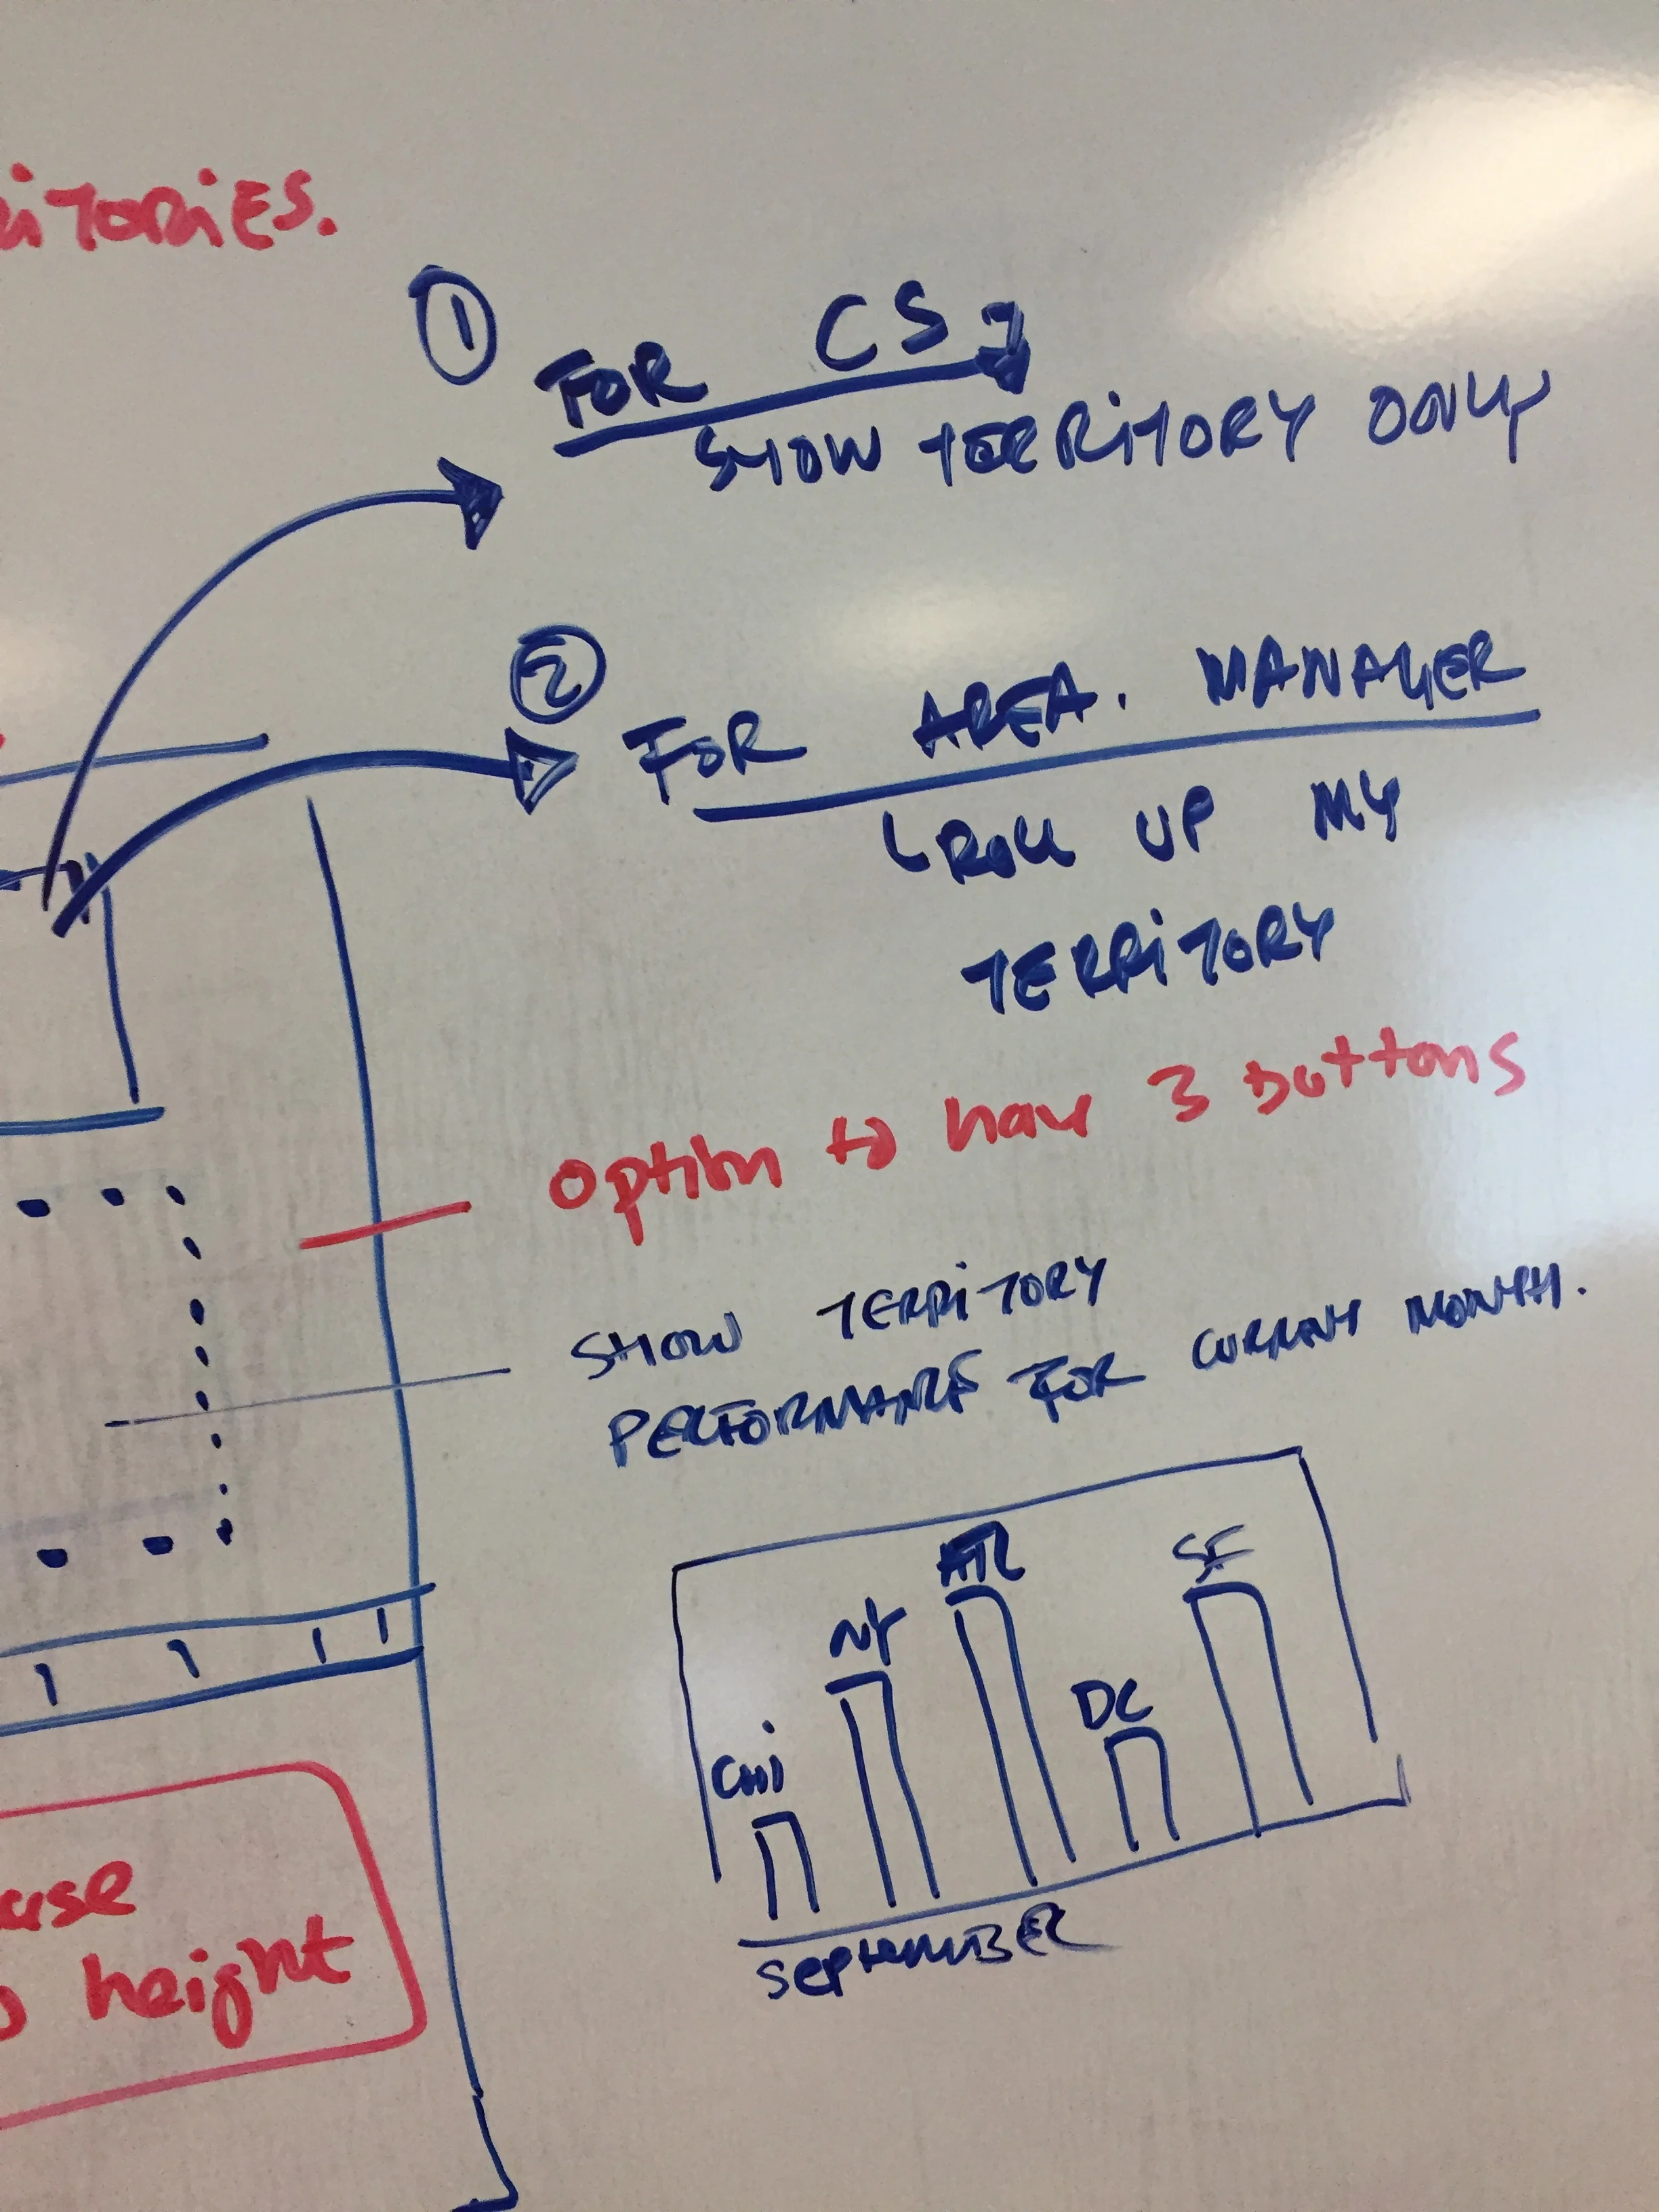 ITORIES.
1
FOR CS
SHOW TERRITORY ONLY
2
FOR AREA. MANAGER
ROLL UP MY
TERRITORY
option to have 3 buttons
SHOW TERRITORY
PERFORMANCE FOR CURRENT MONTH.
CHI NY ATL DC SF
SEPTEMBER
height